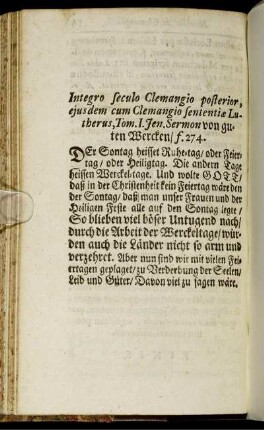 Integro seculo Clemangio posterior,
ejusdem cum Clemangio sententiæ Lu-
therus, Tom. I. Jen. Sermon von gu-
ten Wercken / f. 274.
DEr Sontag heisset Ruhetag / oder Feier-
tag / oder Heiligtag. Die andere Tage
heissen Werckeltage. Und wolte GOTT /
daß in der Christenheit kein Feiertag wäre den
der Sontag / daß man unser Frauen und der
Heiligen Feste alle auf den Sontag legte /
So blieben viel böser Untugend nach /
durch die Arbeit der Werckeltage / wür-
den auch die Länder nicht so arm und
verzehret. Aber nun sind wir mit vielen Fei-
ertagen geplaget / zu Verderbung der Seelen /
Leib und Güter / Davon viel zu sagen wäre.